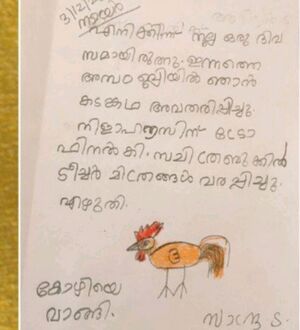 3/12/2
നടയർ
എനിക്കിന്ന് നല്ല ഒരു ദിവ
സമായിരുന്നു. ഇന്നത്തെ
അസംബ്ലിയിൽ ഞാൻ
കടങ്കഥ അവതരിപ്പിച്ചു.
ട്രോ
ഫിനൽകി. സചിത്രബുക്കിൽ
ടീച്ചർ ചിത്രങ്ങൾ വരപ്പിച്ചു.
എഴുതി.
കോഴിയെ
വാങ്ങി.
സാന്ദ്ര S.